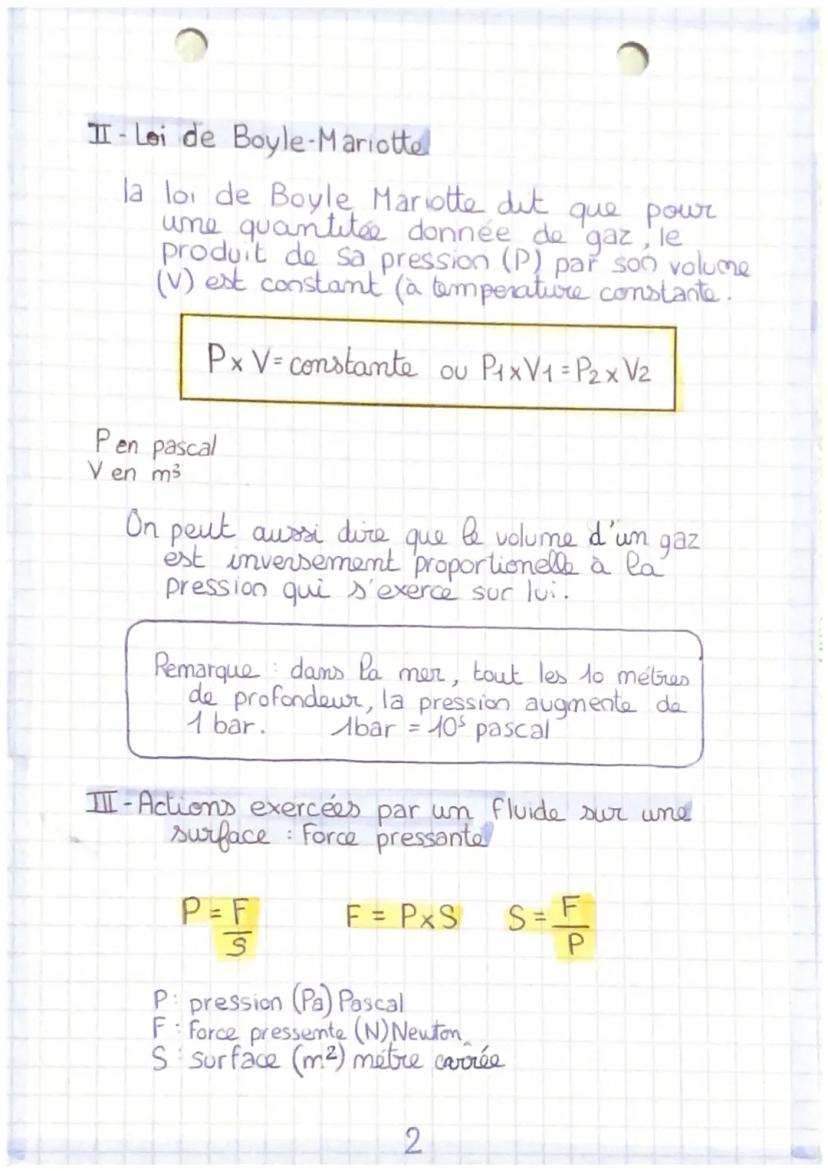 II - Loi de Boyle-Mariotte
la loi de Boyle Mariotte dit que pour
une quantitée donnée de gaz, le
produit de sa pression (P) par son volume
(V) est constant (à temperature constante.
P x V = constante ou P1 x V1 = P2 x V2
P en pascal
V en m³
On peut aussi dire que le volume d'un gaz
est inversement proportionelle à la
pression qui s'exerce sur lui.
Remarque : dans la mer, tout les 10 métres
de profondeur, la pression augmente de
1 bar. 1bar = 10⁵ pascal
III - Actions exercées par un fluide sur une
surface : Force pressante
P = F/S F = P x S S = F/P
P : pression (Pa) Pascal
F : force pressente (N) Newton
S : surface (m²) métre carrée
2